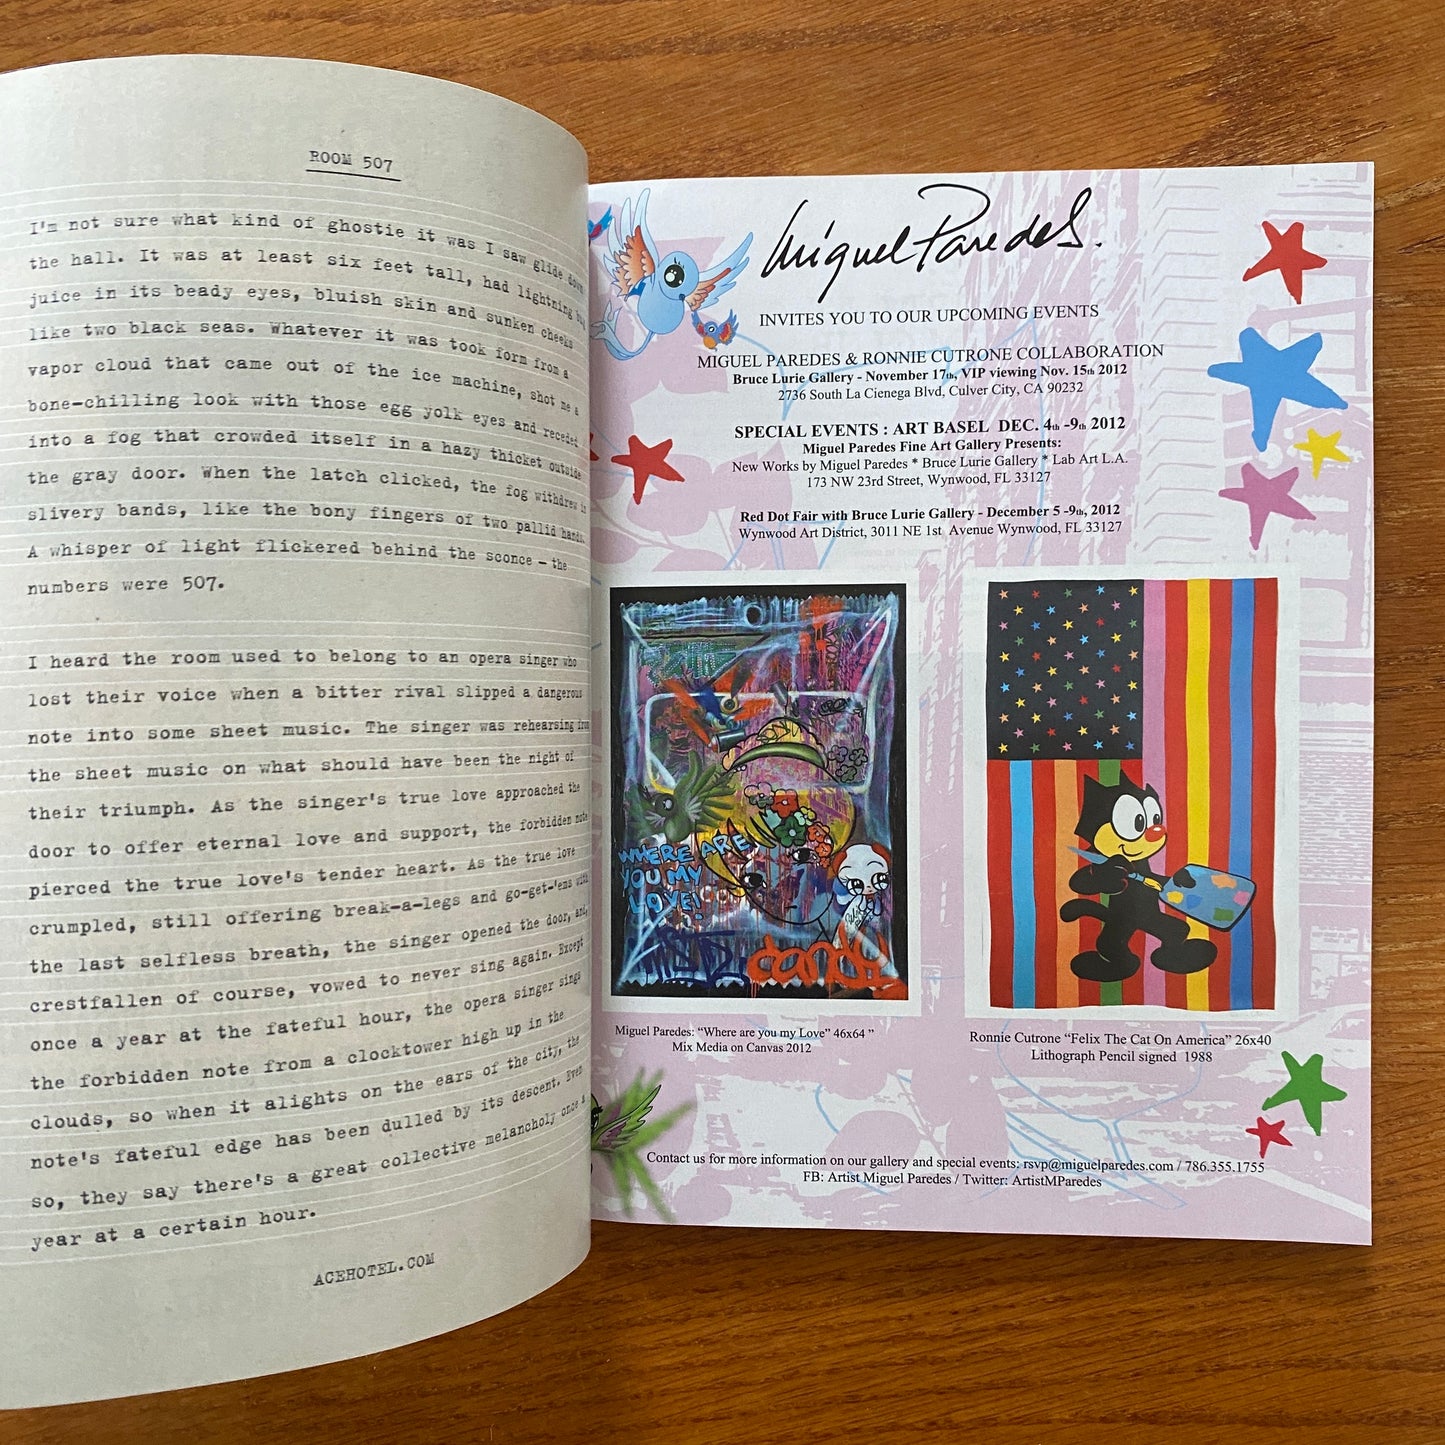 ROOM 507
I'm not sure what kind of ghostie it was I saw glide down
the hall. It was at least six feet tall, had lightning bug
juice in its beady eyes, bluish skin and sunken cheeks
like two black seas. Whatever it was took form from a
vapor cloud that came out of the ice machine, shot me a
bone-chilling look with those egg yolk eyes and receded
into a fog that crowded itself in a hazy thicket outside
the gray door. When the latch clicked, the fog withdrew in
slivery bands, like the bony fingers of two pallid hands.
A whisper of light flickered behind the sconce — the
numbers were 507.
I heard the room used to belong to an opera singer who
lost their voice when a bitter rival slipped a dangerous
note into some sheet music. The singer was rehearsing from
the sheet music on what should have been the night of
their triumph. As the singer's true love approached the
door to offer eternal love and support, the forbidden note
pierced the true love's tender heart. As the true love
crumpled, still offering break-a-legs and go-get-'ems with
the last selfless breath, the singer opened the door, and,
crestfallen of course, vowed to never sing again. Except
once a year at the fateful hour, the opera singer sings
the forbidden note from a clocktower high up in the
clouds, so when it alights on the ears of the city, the
note's fateful edge has been dulled by its descent. Even
so, they say there's a great collective melancholy once a
year at a certain hour.
ACEHOTEL.COM
Miguel Paredes.
INVITES YOU TO OUR UPCOMING EVENTS
MIGUEL PAREDES & RONNIE CUTRONE COLLABORATION
Bruce Lurie Gallery - November 17th, VIP viewing Nov. 15th 2012
2736 South La Cienega Blvd, Culver City, CA 90232
SPECIAL EVENTS : ART BASEL DEC. 4th -9th 2012
Miguel Paredes Fine Art Gallery Presents:
New Works by Miguel Paredes * Bruce Lurie Gallery * Lab Art L.A.
173 NW 23rd Street, Wynwood, FL 33127
Red Dot Fair with Bruce Lurie Gallery - December 5 -9th, 2012
Wynwood Art District, 3011 NE 1st Avenue Wynwood, FL 33127
WHERE ARE
YOU MY
LOVE!
candy
Miguel Paredes: "Where are you my Love" 46x64 "
Mix Media on Canvas 2012
Ronnie Cutrone "Felix The Cat On America" 26x40
Lithograph Pencil signed 1988
Contact us for more information on our gallery and special events: rsvp@miguelparedes.com / 786.355.1755
FB: Artist Miguel Paredes / Twitter: ArtistMParedes